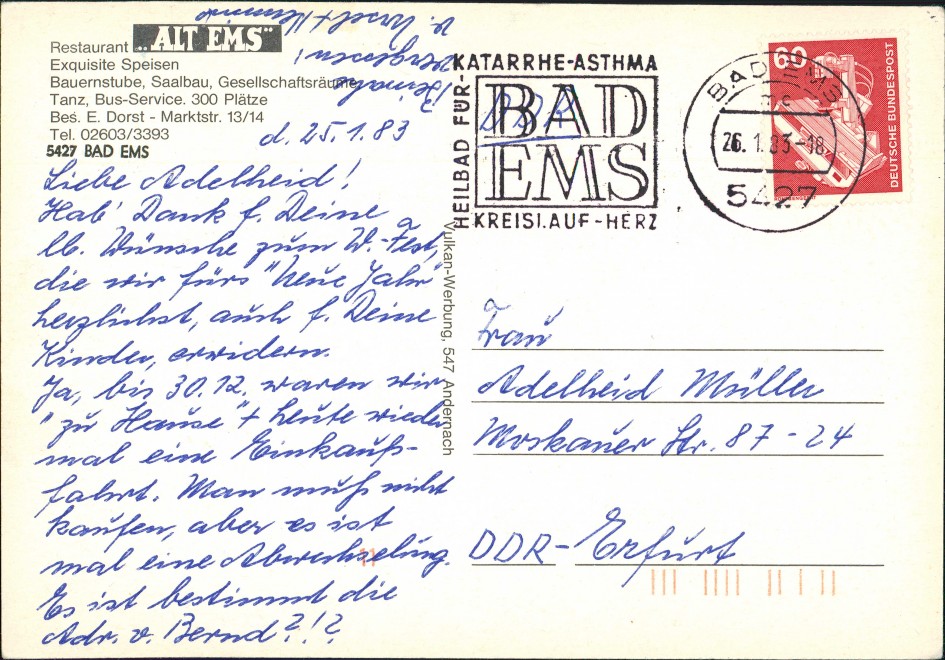 Restaurant „ALT EMS"
Exquisite Speisen
Bauernstube, Saalbau, Gesellschaftsräume
Tanz, Bus-Service. 300 Plätze
Bes. E. Dorst - Marktstr. 13/14
Tel. 02603/3393
5427 BAD EMS
d. 25.1.83
Liebe Adelheid!
Hab' Dank f. Deine
lb. Wünsche zum W.-Fest,
die wir fürs "Neue Jahr"
herzlichst, auch f. Deine
Kinder, erwidern.
Ja, bis 30.12. waren wir
"zu Hause" + heute wieder
mal eine Einkaufs-
fahrt. Man muß nicht
kaufen, aber es ist
mal eine Abwechselung.
Es ist bestimmt die
Adr. v. Bernd?!?
Beinah
vergessen!
v. Ursel +
Vulkan-Werbung, 547 Andernach
HEILBAD FÜR-
KATARRHE-ASTHMA
BAD
EMS
KREISL.AUF-HERZ
BAD EMS
26.1.83-18
5427
60
DEUTSCHE BUNDESPOST
Frau
Adelheid Müller
Moskauer Str. 87-24
DDR-Erfurt
11